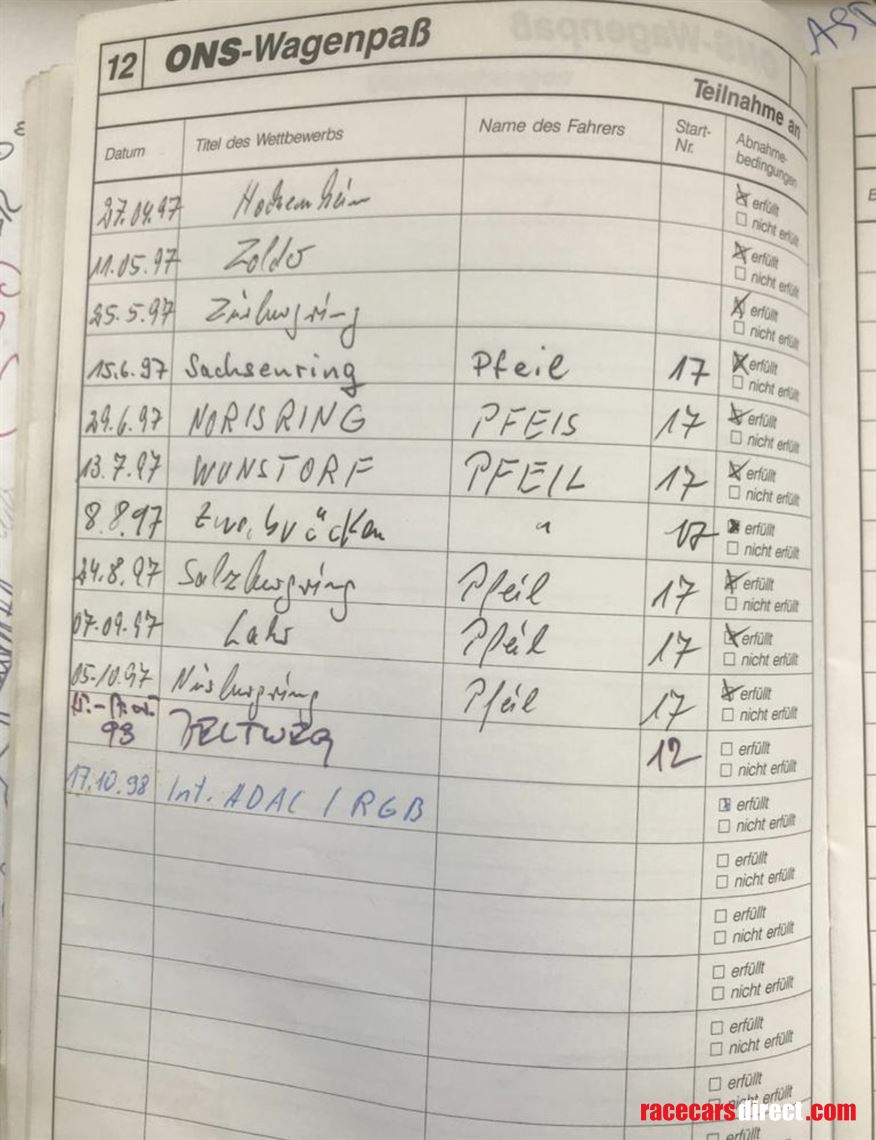 12 ONS-Wagenpaß
Teilnahme an
Datum Titel des Wettbewerbs Name des Fahrers Start-Nr. Abnahme-bedingungen
27.04.97 Hockenheim erfüllt
nicht erfüllt
11.05.97 Zolder erfüllt
nicht erfüllt
25.5.97 erfüllt
nicht erfüllt
15.6.97 Sachsenring Pfeil 17 erfüllt
nicht erfüllt
29.6.97 NORISRING PFEIS 17 erfüllt
nicht erfüllt
13.7.97 WUNSTORF PFEIL 17 erfüllt
nicht erfüllt
8.8.97 Zweibrücken " 17 erfüllt
nicht erfüllt
24.8.97 Salzburgring Pfeil 17 erfüllt
nicht erfüllt
07.09.97 Lahr Pfeil 17 erfüllt
nicht erfüllt
05.10.97 Nürburgring Pfeil 17 erfüllt
nicht erfüllt
98 ZELTWEG 12 erfüllt
nicht erfüllt
17.10.98 Int. ADAC / RGB erfüllt
nicht erfüllt
erfüllt
nicht erfüllt
erfüllt
nicht erfüllt
erfüllt
nicht erfüllt
erfüllt
nicht erfüllt
erfüllt
nicht erfüllt
erfüllt
racecarsdirect.com